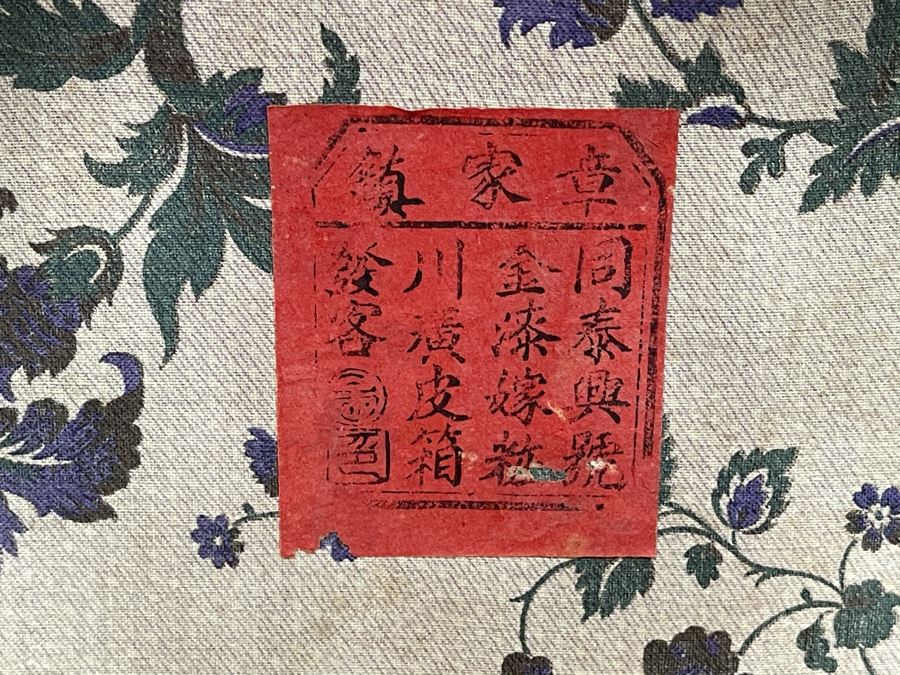 章家鎮
同泰興號
金漆嫁粧
川漢皮箱
發客